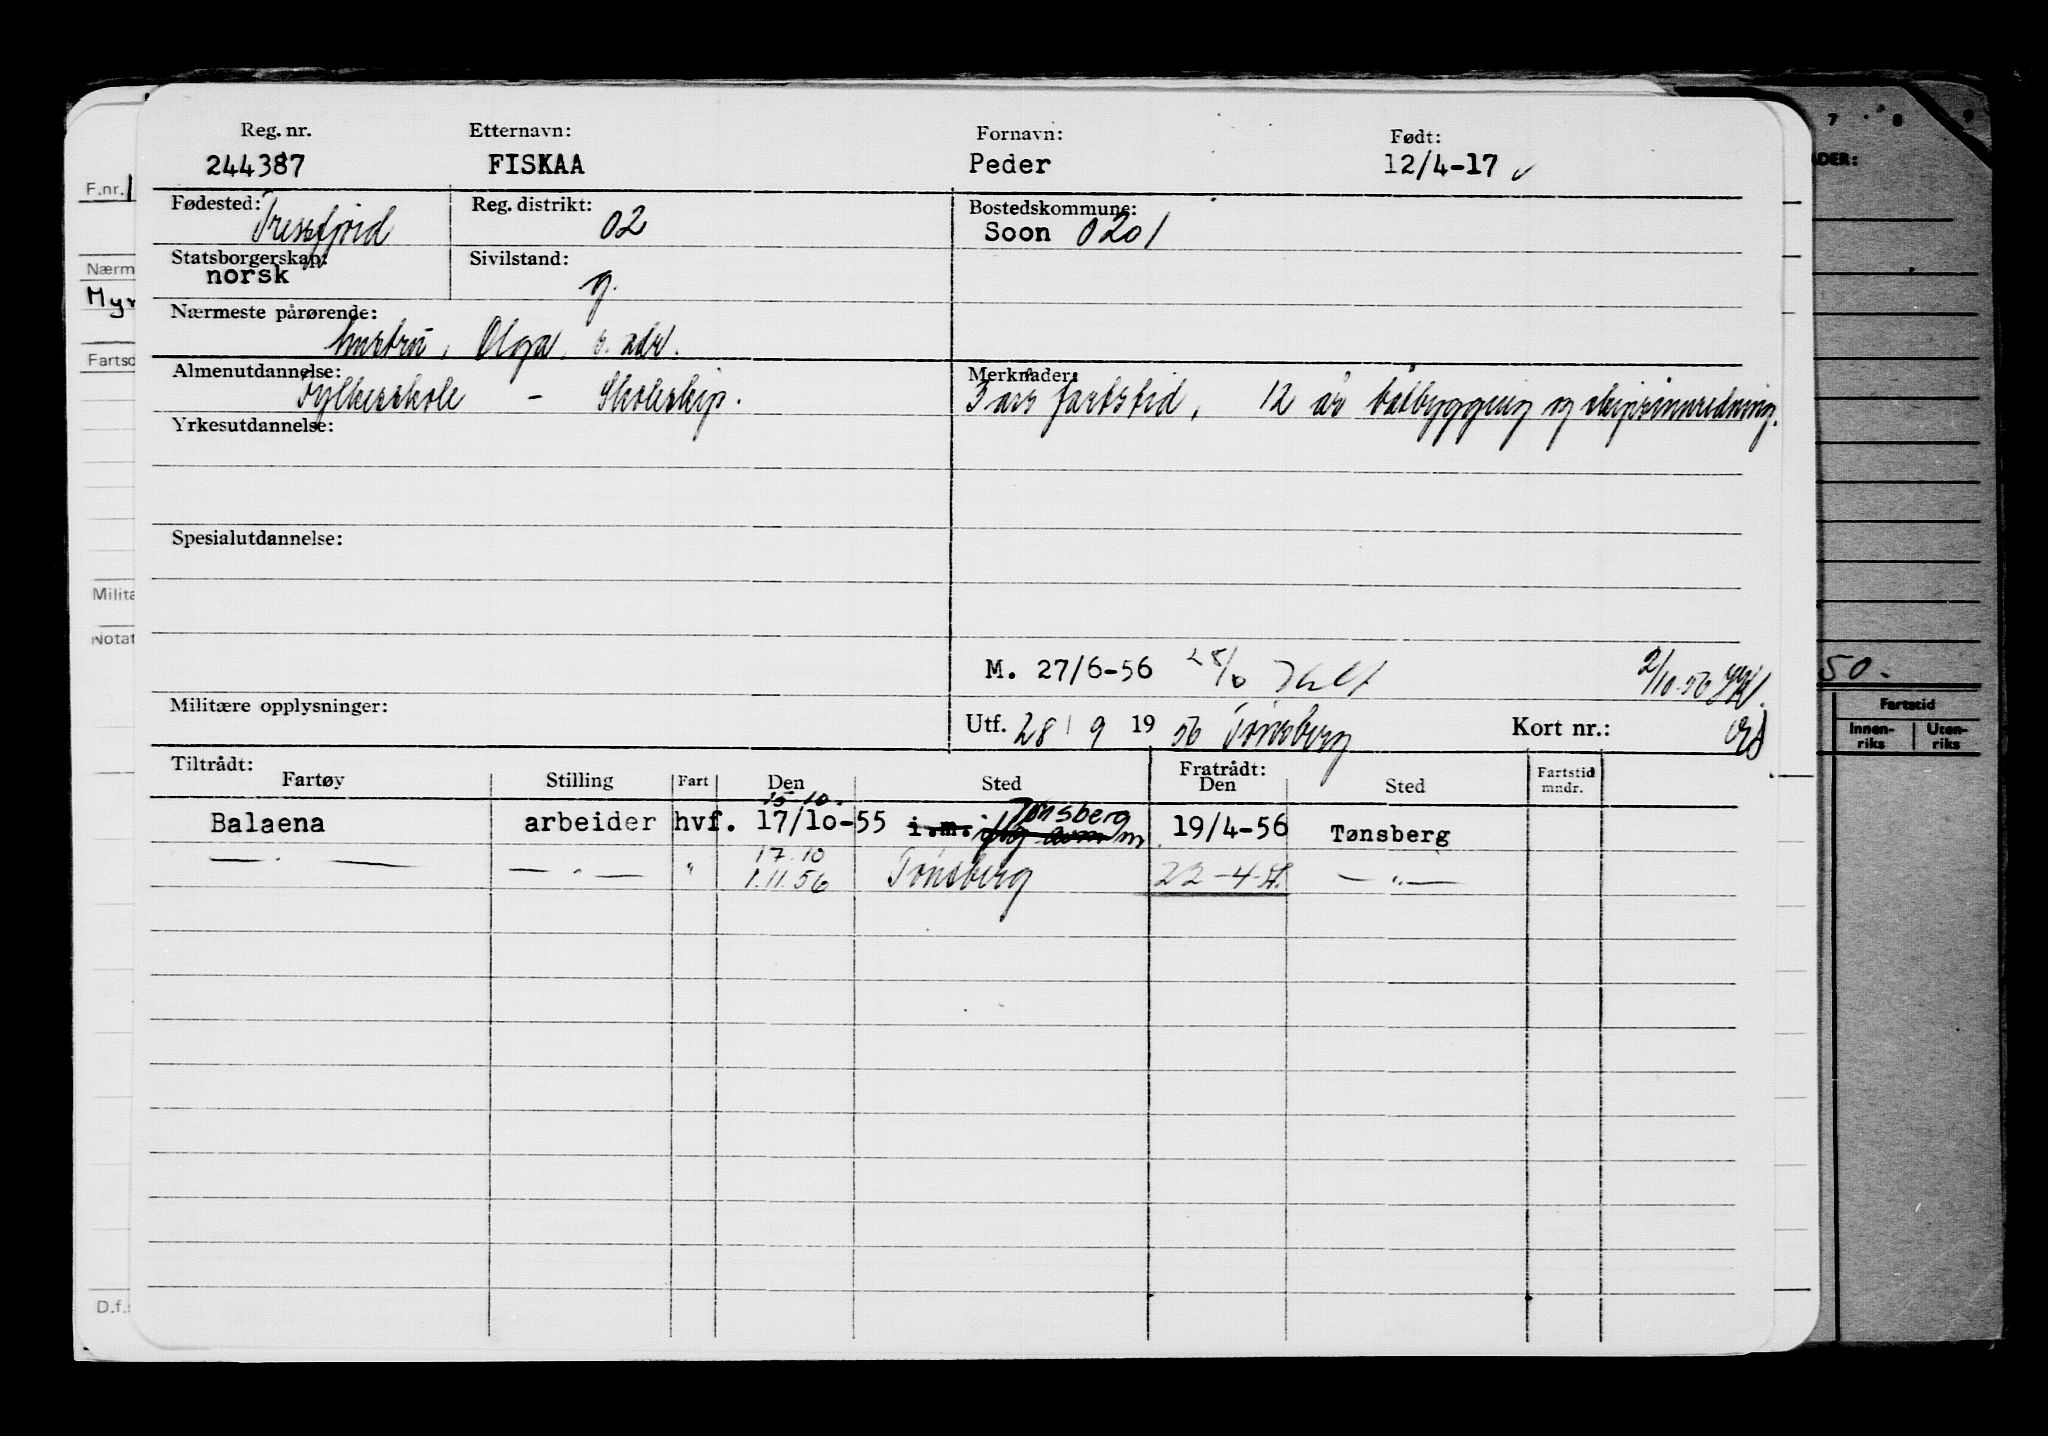 Reg. nr. Etternavn: Fornavn: Født:
244387 FISKAA Peder 12/4-17
Fødested: Reg. distrikt: Bostedskommune:
Tressfjord 02 Soon 0201
Statsborgerskap: Sivilstand:
norsk g.
Nærmeste pårørende:
hustru, Olga, s. adr.
Almenutdannelse: Merknader:
Fylkesskole - Skoleskip. 3 års fartstid, 12 år båtbygging og skipsinnredning.
Yrkesutdannelse:
Spesialutdannelse:
M. 27/6-56 2/10-56
Militære opplysninger: Utf. 28/9 1956 Tønsberg Kort nr.:
Tiltrådt: Fratrådt:
Fartøy Stilling Fart Den Sted Den Sted Fartstid mndr.
15-10- Tønsberg
Balaena arbeider hvf. 17/10-55 i.m. 19/4-56 Tønsberg
17.10
— " — — " — " 1.11.56 Tønsberg 22-4-57. — " —
F.nr.
Nærm
Myr
Fartso
Milita
Notat
D.f.
7 8 9
ADER:
50.
Fartstid
Innen-
riks
Uten-
riks